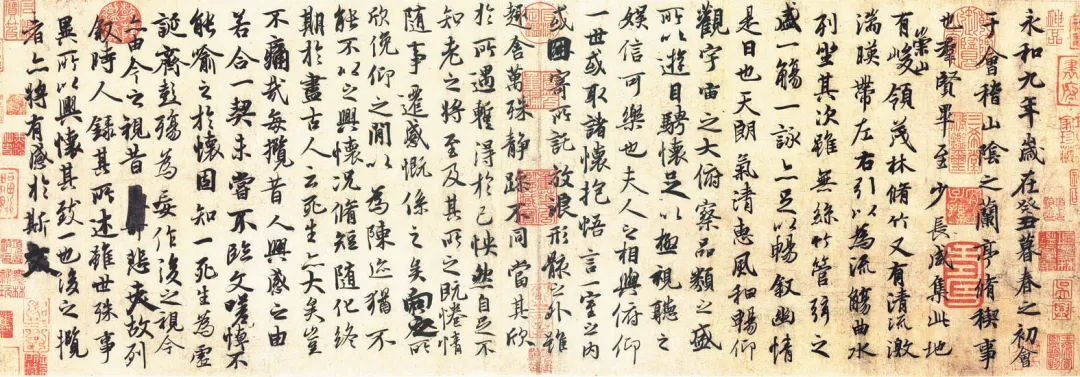 永和九年歲在癸丑暮春之初會
于會稽山陰之蘭亭脩稧事
也羣賢畢至少長咸集此地
有崇山峻領茂林脩竹又有清流激
湍暎帶左右引以為流觴曲水
列坐其次雖無絲竹管弦之
盛一觴一詠亦足以暢叙幽情
是日也天朗氣清惠風和暢仰
觀宇宙之大俯察品類之盛
所以遊目騁懷足以極視聽之
娛信可樂也夫人之相與俯仰
一世或取諸懷抱悟言一室之內
或因寄所託放浪形骸之外雖
趣舍萬殊静躁不同當其欣
於所遇暫得於己怏然自足不
知老之將至及其所之既惓情
隨事遷感慨係之矣向之所
欣俛仰之間以為陳迹猶不
能不以之興懷況脩短隨化終
期於盡古人云死生亦大矣豈
不痛哉每攬昔人興感之由
若合一契未嘗不臨文嗟悼不
能喻之於懷固知一死生為虛
誕齊彭殤為妄作後之視今
亦由今之視昔悲夫故列
叙時人錄其所述雖世殊事
異所以興懷其致一也後之攬
者亦將有感於斯文